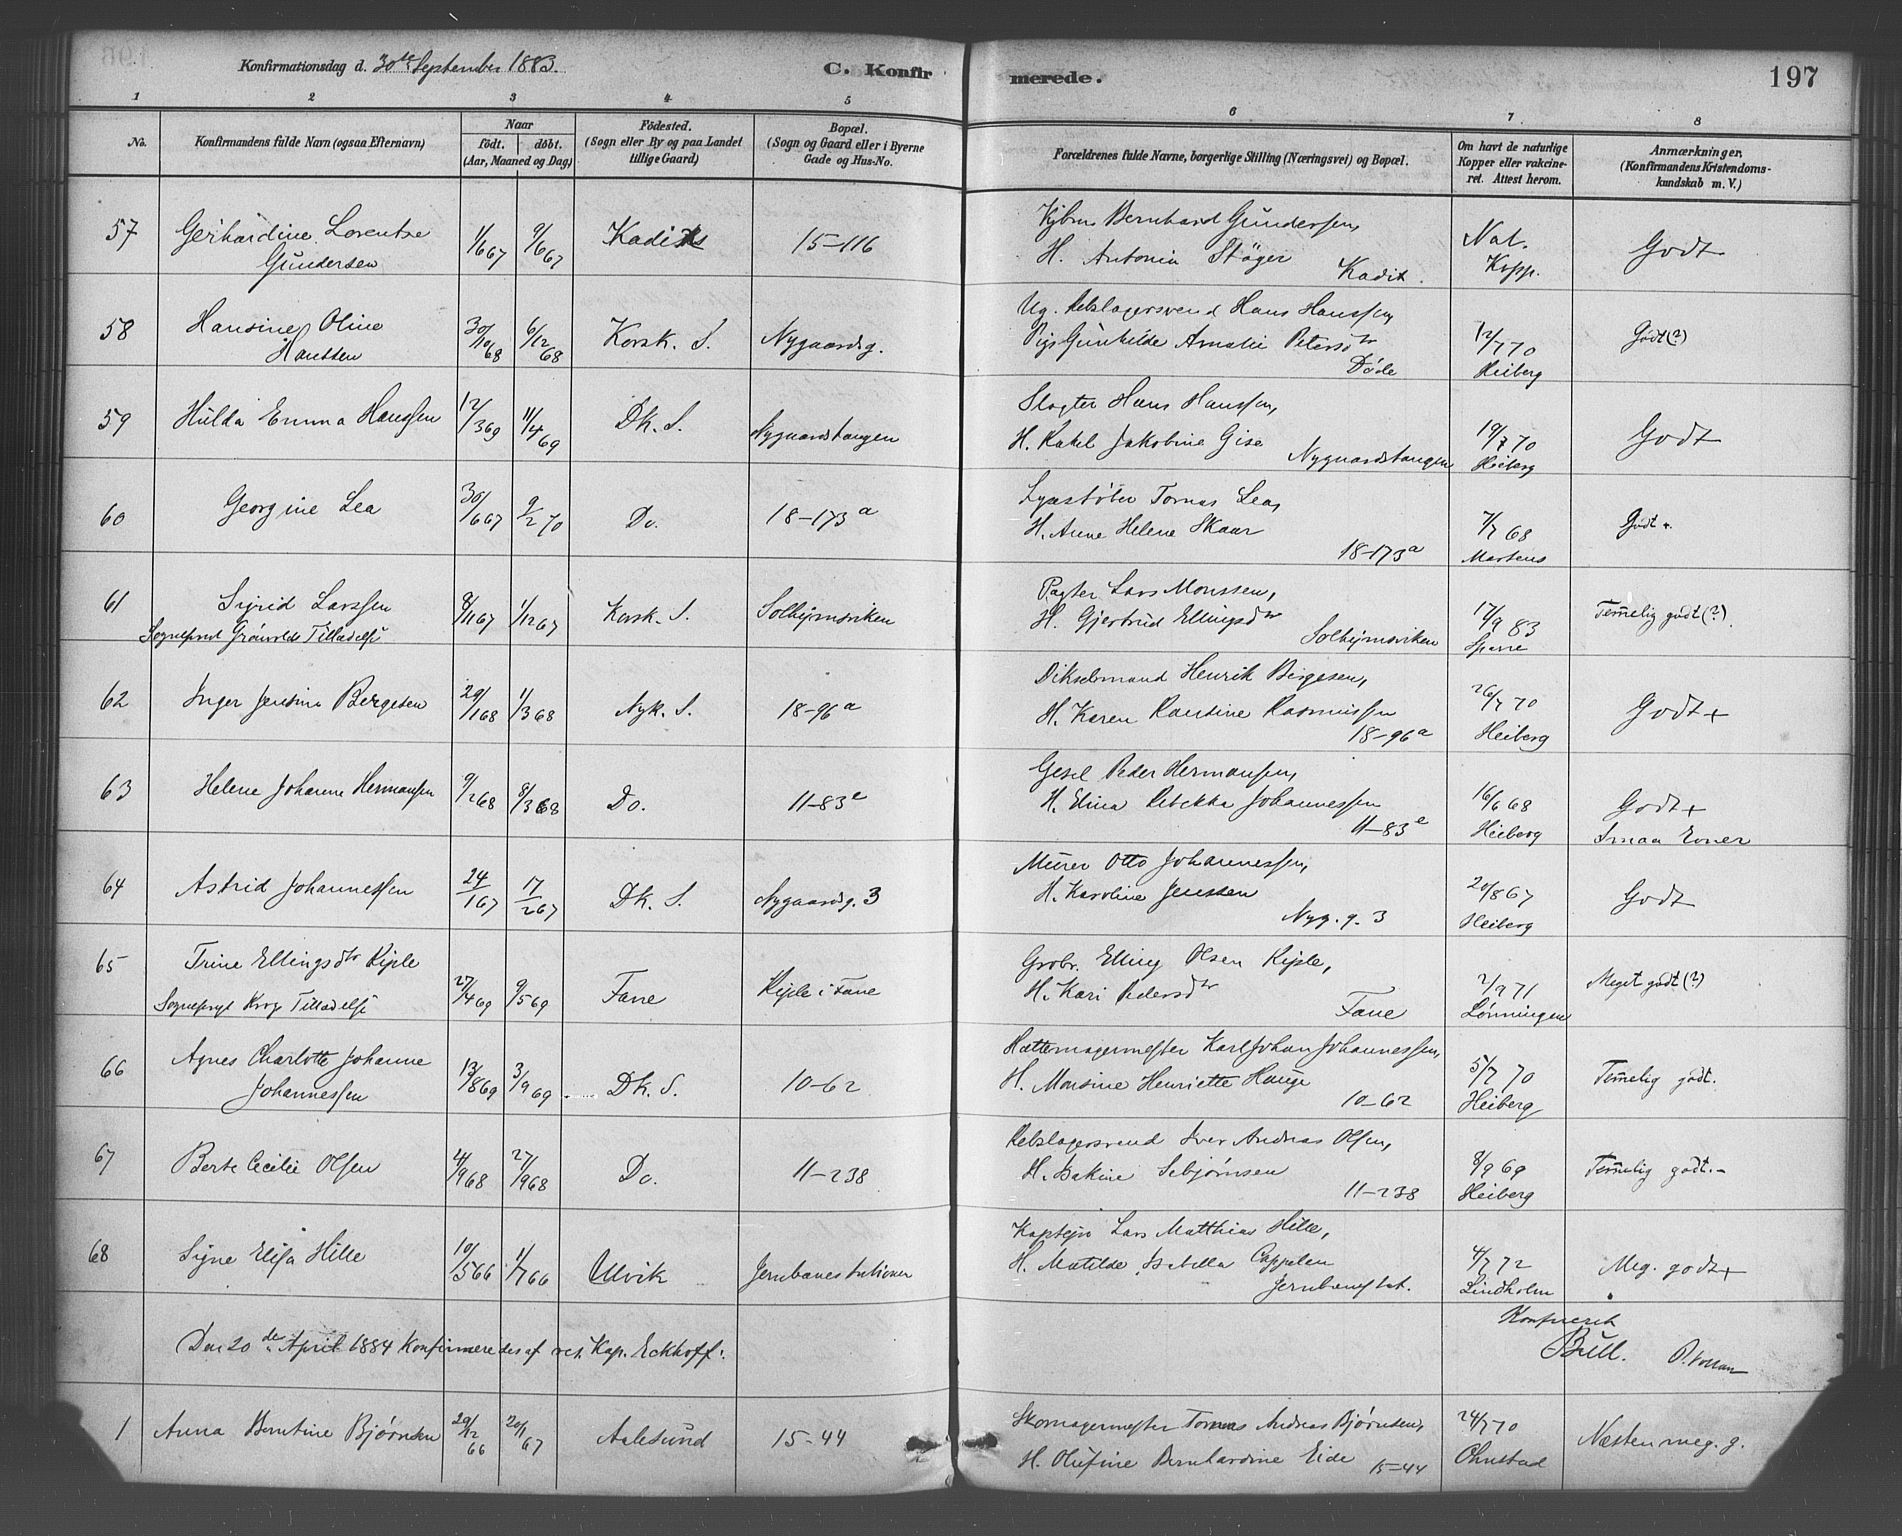 Konfirmationsdag d. 30te September 1883. C. Konfirmerede. 197
1 2 3 4 5 6 7 8
No. Konfirmandens fulde Navn (ogsaa Efternavn) Naar født. døbt. (Aar, Maaned og Dag) Fødested. (Sogn eller By og paa Landet tillige Gaard) Bopæl. (Sogn og Gaard eller i Byerne Gade og Hus-No.) Forældrenes fulde Navne, borgerlige Stilling (Næringsvei) og Bopæl. Om havt de naturlige Kopper eller vakcineret. Attest herom. Anmærkninger. (Konfirmandens Kristendomskundskab m. V.)
57 Gerhardine Lorentze 1/6 67 9/6 67 15-116 Bernhard Gundersen, Nat. Godt
Gundersen H. Antonia Støger Kadix. Kopp.
58 Hansine Oline 30/10 68 6/12 68 Korsk. S. Nygaardsg. Ug. Rebslagersvend Hans Hanssen, 12/7 70 Godt (?)
Hanssen Pige Gunhilde Amalie Petersdtr Heiberg
Døde
59 Hulda Emma Hanssen 12/3 69 11/4 69 Dk. S. Nygaardstangen Slagter Hans Hanssen, 19/7 70 Godt
H. Rakel Jakobine Gise Nygaardstangen Heiberg
60 Georgine Lea 30/6 67 9/2 70 Do. 18-173a Lysestøber Tornas Lea, 7/7 68 Godt +
H. Anne Helene Skaar
18-173a Martens
61 Sigrid Larssen 8/11 67 1/12 67 Korsk. S. Solheimsviken Pagter Lars Monssen, 17/9 83 Temelig godt (?).
Sogneprest Grønvolds Tilladelse H. Gjertrud Ellingsdtr Solheimsviken Sparre
62 Inger Jensine Bergesen 29/1 68 1/3 68 Nyk. S. 18-96a Henrik Bergesen, 26/7 70 Godt +
H. Karen Rasmussen
18-96a Heiberg
63 Helene Johanne Hermansen 9/2 68 8/3 68 Do. 11-83e Gesel Peder Hermansen, 16/6 68 Godt +
H. Elina Rebekka Johannessen 11-83e Heiberg Smaa Evner
64 Astrid Johannessen 24/1 67 17/2 67 Dk. S. Nygaardsg. 3 Murer Otto Johannessen, 20/8 67 Godt
H. Karoline Jenssen Nyg. g. 3 Heiberg
65 Trine Ellingsdtr Kiple 27/4 69 9/5 69 Fane Kiple i Fane Grbr. Elling Olsen Kiple, 2/9 71 Meget godt (?)
Sogneprst Krog Tilladelse H. Kari Pedersdtr Fane Lønningen
66 Agnes Charlotte Johanne 13/8 69 3/9 69 Dk. S. 10-62 Hattemagermester Karl Johan Johannessen, 5/7 70 Temelig godt.
Johannessen H. Monsine Henriette Hauge 10-62 Heiberg
67 Berte Cecilie Olsen 4/9 68 27/9 68 Do. 11-238 Rebslagersvend Iver Andreas Olsen, 8/9 69 Temelig godt.-
H. Bakine Sebjørnsen 11-238 Heiberg
68 Signe Elisa Hille 10/5 66 1/7 66 Ulvik Jernbanestationen Kaptejn Lars Matthias Hille, 4/7 72 Meg. godt +
H. Matilde Isabella Cappelen Jernbanestat. Lindholm
Den 20de April 1884 Konfirmeredes af res. Kap. Eckhoff: Konfereret Bull.
1 Anna Berntine Bjørnsen 29/12 66 20/1 67 Aalesund 15-44 Skomagermester Tornas Andreas Bjørnsen, 24/7 70 Næsten meg. g.
H. Olufine Bernhardine Eide 15-44 Ohnstad